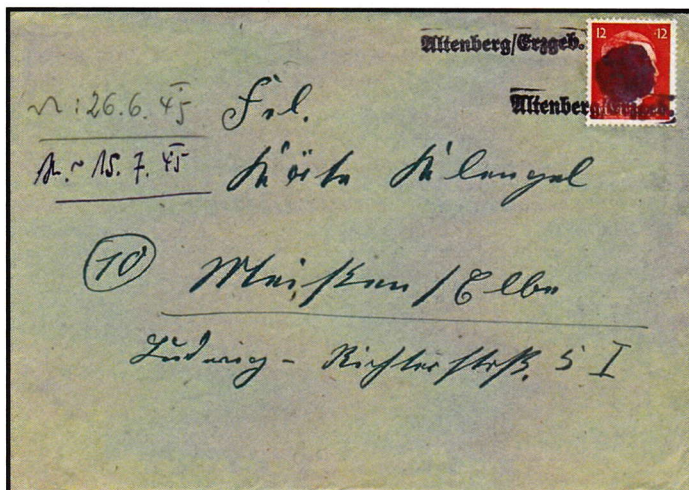 Altenberg/Erzgeb.
12 12
Altenberg/Erzgeb.
26.6.45
15.7.45
Frl.
Käte Klengel
(10) Meißen/Elbe
Ludwig-Richterstrß. 5 I